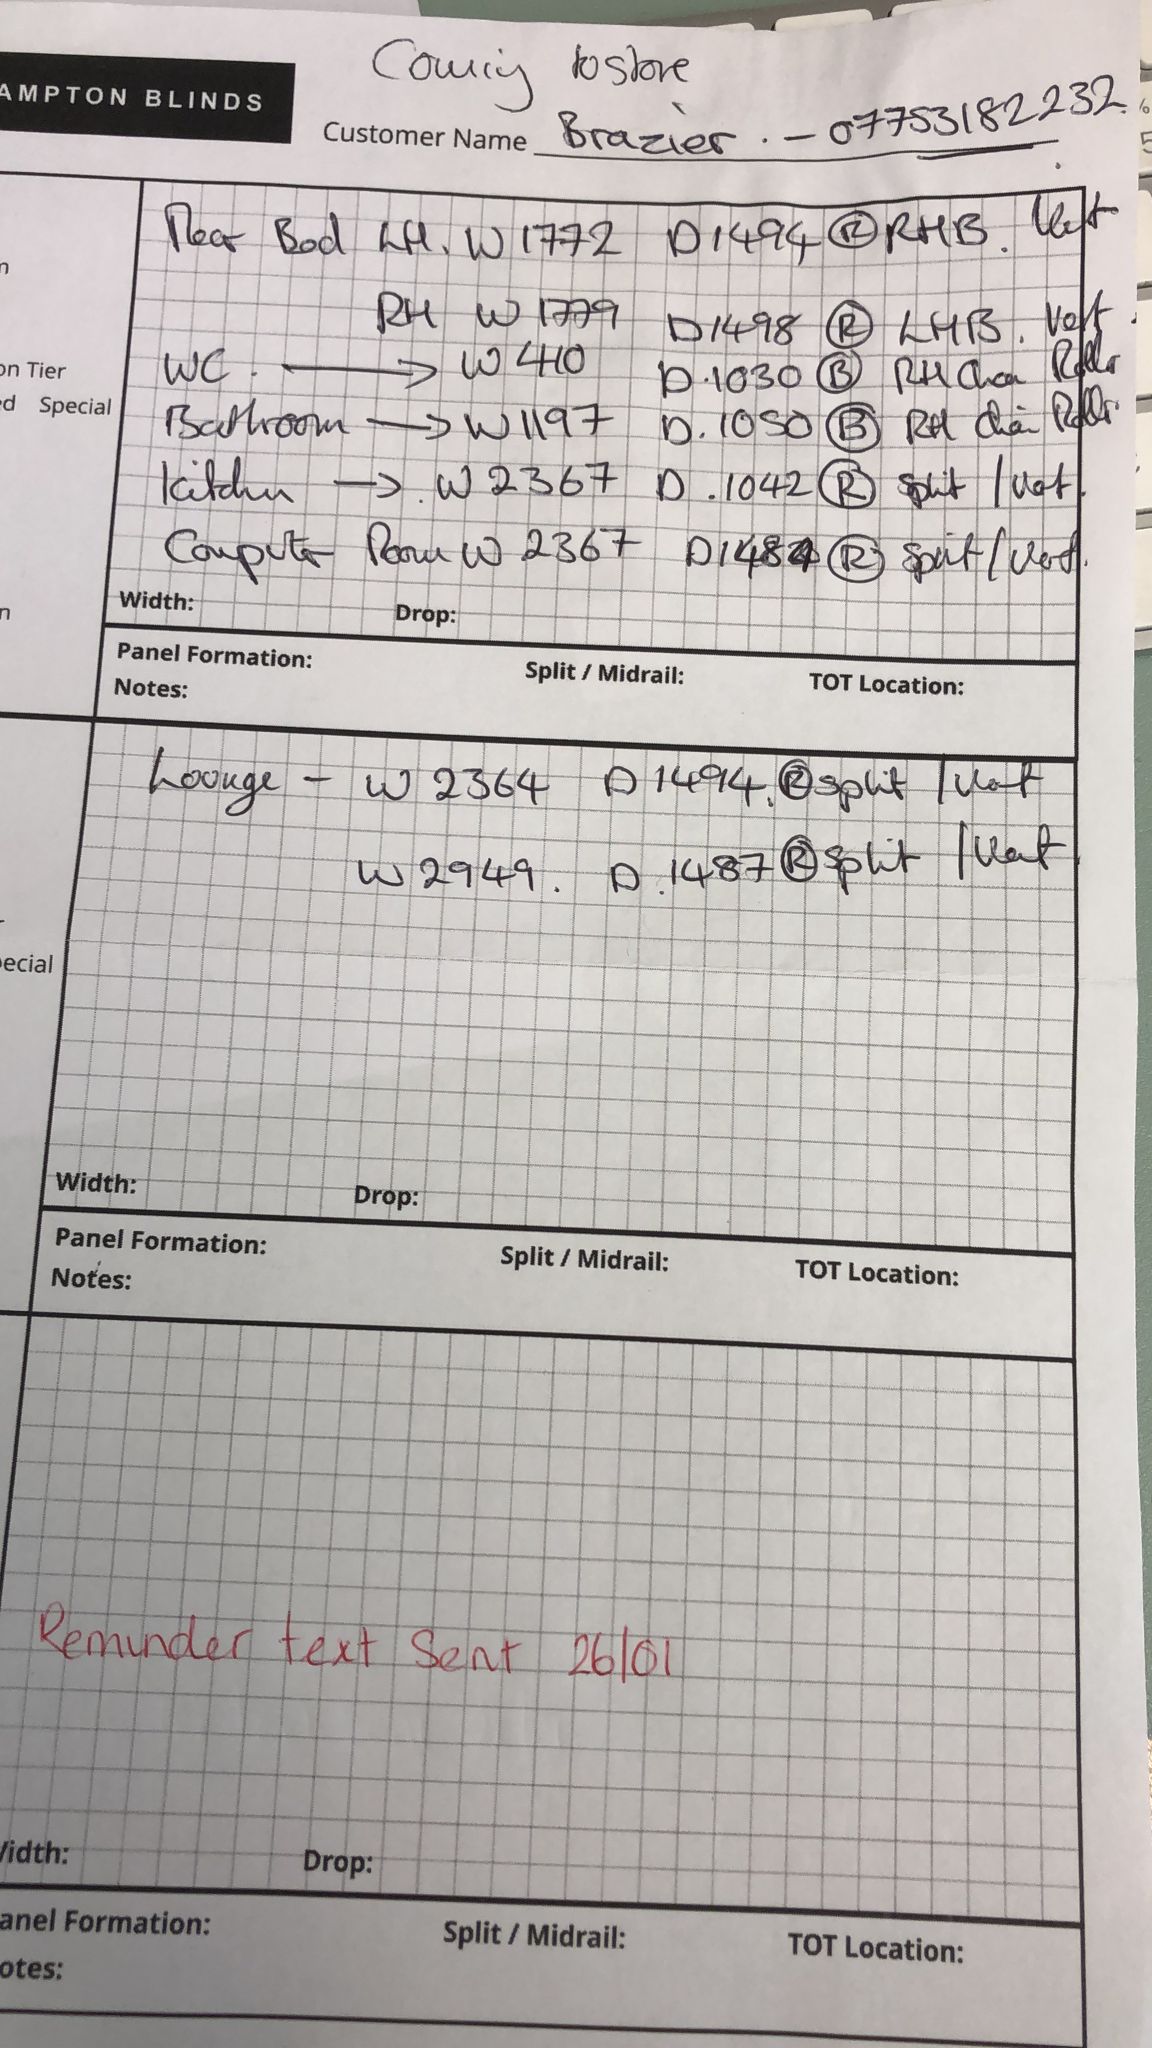 Coming to store
AMPTON BLINDS
Customer Name Brazier. - 07753182232.
Rear Bed LH. W 1772 D 1494 Ⓡ RHB. Vert
RH W 1779 D 1498 Ⓡ LHB. Vert.
on Tier
WC. → W 410 D.1030 Ⓑ RH Chain Roller
ed Special
Bathroom → W 1197 D.1050 Ⓑ RH Chain Roller
Kitchen → W 2367 D.1042 Ⓡ Split / Vert.
Computer Room W 2367 D 1484 Ⓡ Split / Vert.
Width: Drop:
Panel Formation: Split / Midrail: TOT Location:
Notes:
Lounge - W 2364 D 1494. Ⓡ Split / Vert
W 2949. D.1487 Ⓡ Split / Vert
pecial
Width: Drop:
Panel Formation: Split / Midrail: TOT Location:
Notes:
Reminder text sent 26/01
Width: Drop:
anel Formation: Split / Midrail: TOT Location:
otes: